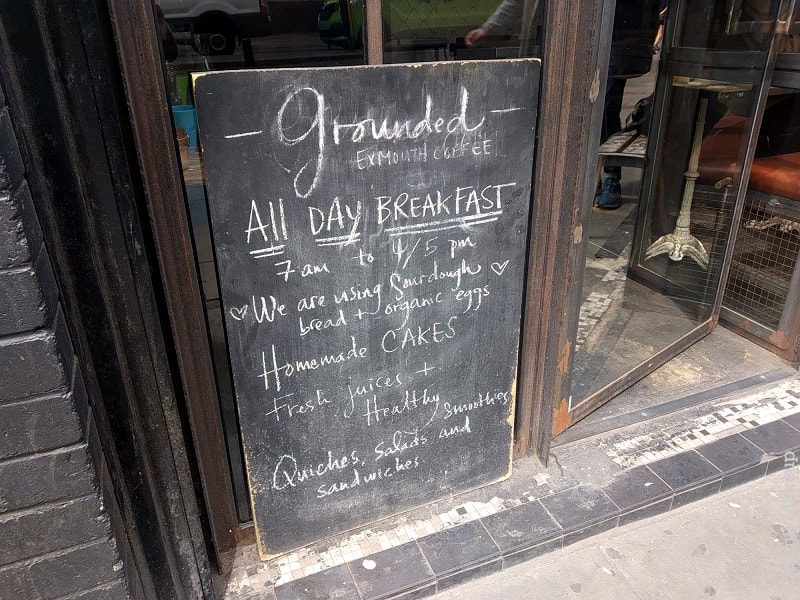 - Grounded -
EXMOUTH COFFEE
All DAY BREAKFAST
7am to 4/5 pm
♡ We are using Sourdough ♡
bread + organic eggs
Homemade CAKES
Fresh juices +
Healthy smoothies
Quiches, salads and
sandwiches